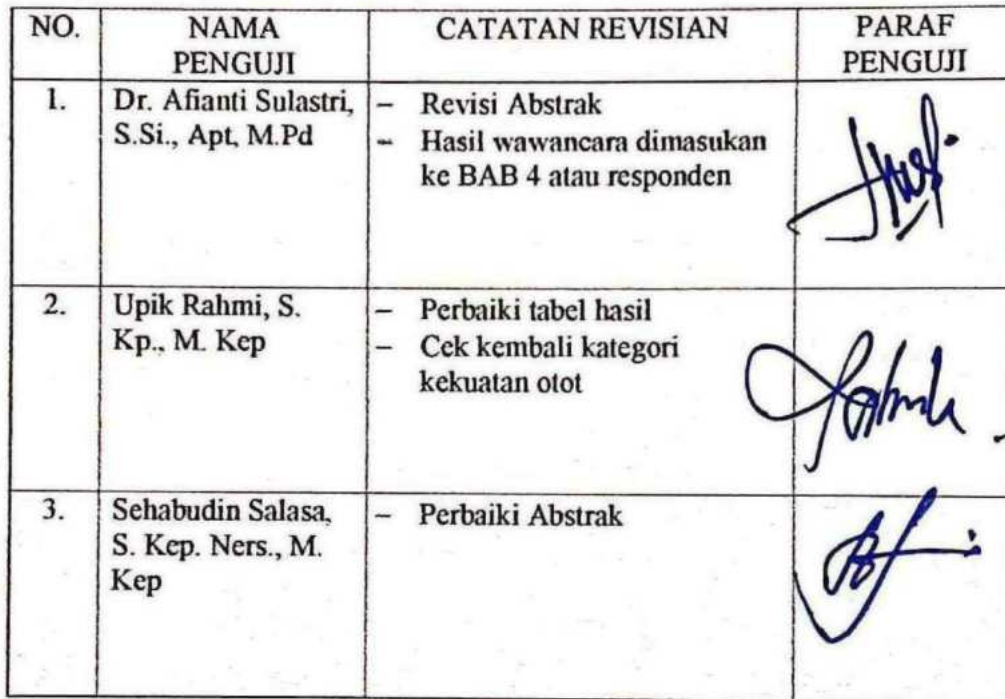 NO.
NAMA
PENGUJI
CATATAN REVISIAN
PARAF
PENGUJI
1.
Dr. Afianti Sulastri,
S.Si., Apt, M.Pd
– Revisi Abstrak
– Hasil wawancara dimasukan
ke BAB 4 atau responden
2.
Upik Rahmi, S.
Kp., M. Kep
– Perbaiki tabel hasil
– Cek kembali kategori
kekuatan otot
3.
Sehabudin Salasa,
S. Kep. Ners., M.
Kep
– Perbaiki Abstrak